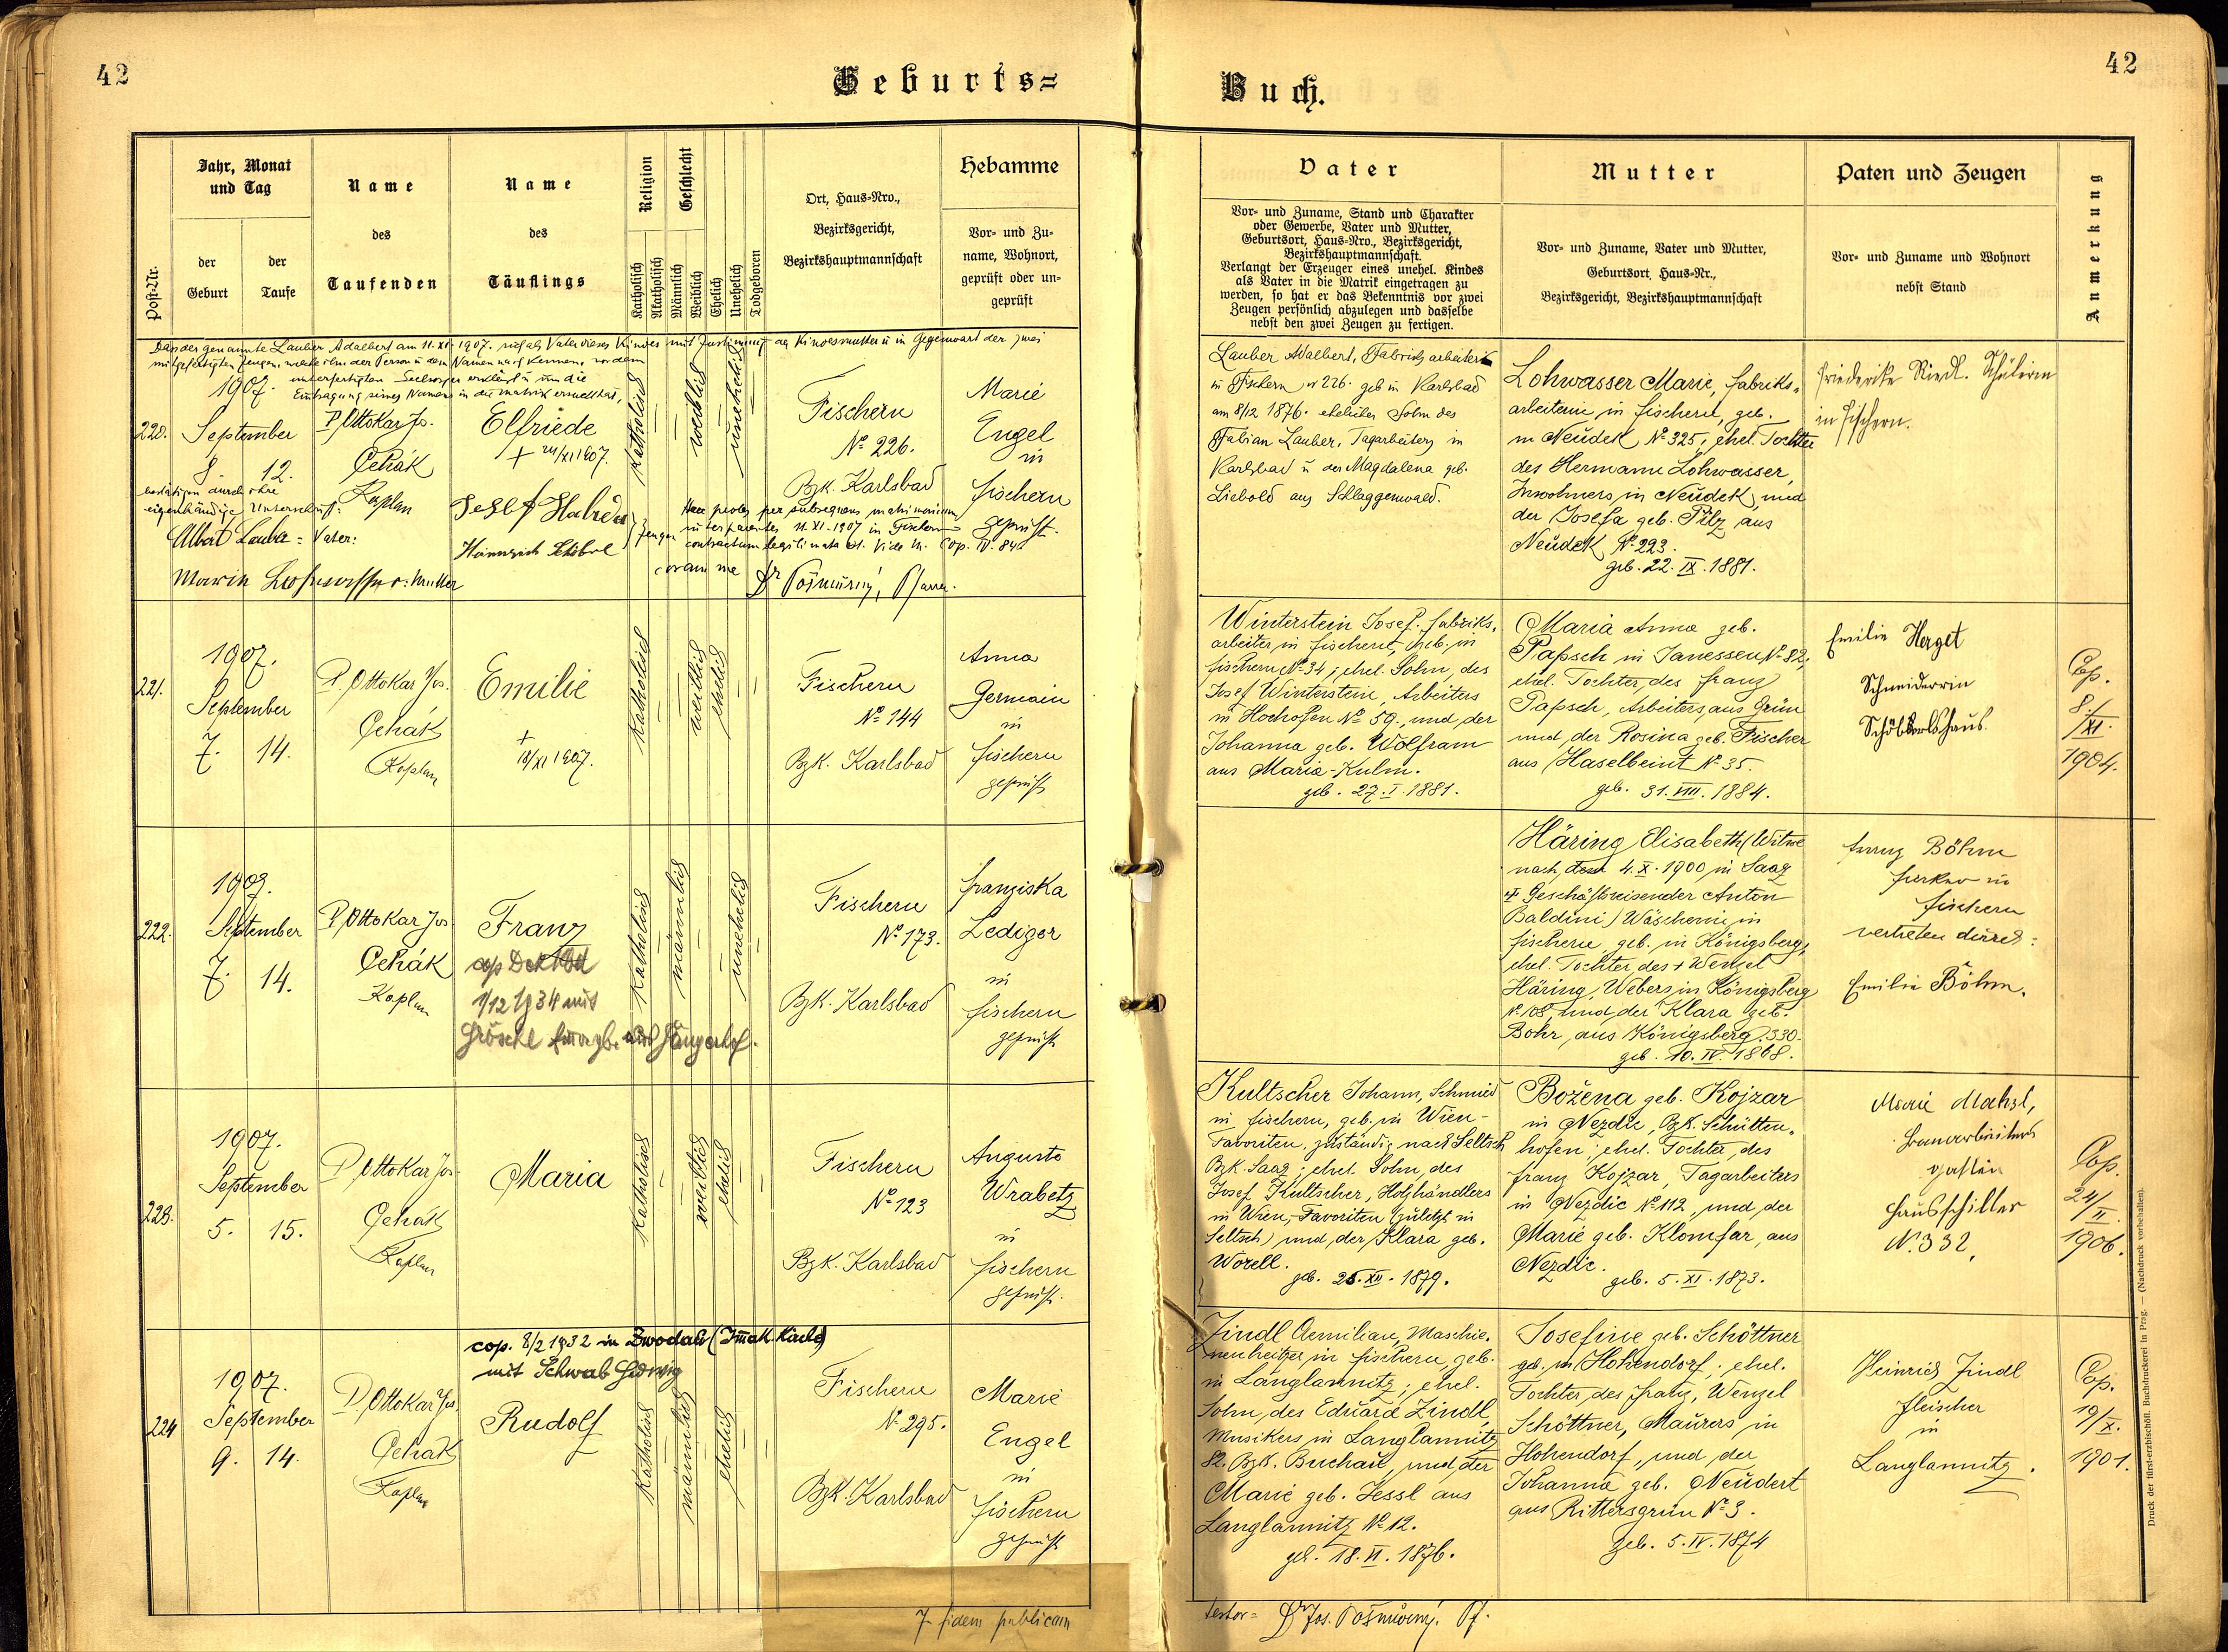 42
Geburts=
Buch.
42
Post-Nr.
Jahr, Monat
und Tag
der
Geburt
der
Taufe
Name
des
Taufenden
Name
des
Täuflings
Religion
Katholisch
Akatholisch
Geschlecht
Männlich
Weiblich
Ehelich
Unehelich
Todgeboren
Ort, Haus-Nro.,
Bezirksgericht,
Bezirkshauptmannschaft
Hebamme
Vor- und Zu-
name, Wohnort,
geprüft oder un-
geprüft
Vater
Vor- und Zuname, Stand und Charakter
oder Gewerbe, Vater und Mutter,
Geburtsort, Haus-Nro., Bezirksgericht,
Bezirkshauptmannschaft.
Verlangt der Erzeuger eines unehel. Kindes
als Vater in die Matrik eingetragen zu
werden, so hat er das Bekenntnis vor zwei
Zeugen persönlich abzulegen und dasselbe
nebst den zwei Zeugen zu fertigen.
Mutter
Vor- und Zuname, Vater und Mutter,
Geburtsort, Haus-Nr.,
Bezirksgericht, Bezirkshauptmannschaft
Paten und Zeugen
Vor- und Zuname und Wohnort
nebst Stand
Anmerkung
Das der genannte Lauber Adalbert am 11. XI. 1907. sich als Vater dieses Kindes mit Zustimmung der Kindesmutter u in Gegenwart der zwei
mitgefertigten Zeugen, welche ihn der Person u dem Namen nach kennen, vor dem
unterfertigten Seelsorger erklärt u um die
Eintragung seines Namens in die Matrik ersucht hat,
220.
1907.
September
8. 12.
P. Ottokar Jos.
Čehák
Kaplan
Elfriede
+ 24/XI 1907.
katholisch
weiblich
unehelich
Fischern
Nº 226.
Bzk. Karlsbad
Marie
Engel
in
Fischern
geprüft.
bestätigen durch ihre
eigenhändige Unterschrift:
Albert Lauber = Vater:
Marie Lohwasser: Mutter
Zeugen
Haec proles per subsequens matrimonium
inter parentes 11. XI. 1907 in Fischern
contractum legitimata est. Vide M. Cop. IV. 84
coram me
Pfarrer.
Lauber Adalbert, Fabriksarbeiter
in Fischern Nr 226. geb in Karlsbad
am 8/12 1876. ehelicher Sohn des
Fabian Lauber, Tagarbeiters in
Karlsbad u der Magdalena geb.
Liebold aus Schlaggenwald.
Lohwasser Marie, Fabriks-
arbeiterin in Fischern, geb.
in Neudek Nº 325; ehel. Tochter
des Hermann Lohwasser,
Inwohners in Neudek, und
der Josefa geb. Pilz aus
Neudek Nº 223.
geb. 22. IX. 1881.
Friederike Riedl. Schülerin
in Fischern.
221.
1907.
September
7. 14.
P. Ottokar Jos.
Čehák
Kaplan
Emilie
+
18/XI 1907.
katholisch
weiblich
ehelich
Fischern
Nº 144
Bzk. Karlsbad
Anna
Germain
in
Fischern
geprüft
Winterstein Josef, Fabriks-
arbeiter in Fischern, geb. in
Fischern Nº 34; ehel. Sohn des
Josef Winterstein, Arbeiters
in Hochofen Nº 59., und der
Johanna geb. Wolfram
aus Maria-Kulm.
geb. 27. I. 1881.
Maria Anna geb.
Papsch in Janessen Nº 82,
ehel. Tochter des Franz
Papsch, Arbeiters aus Grün
und der Rosina geb. Fischer
aus Haselbeint Nº 35.
geb. 31. VIII. 1884.
Emilie Herget
Schneiderin
Cop.
8./
/XI.
1904.
222.
1907.
September
7. 14.
P. Ottokar Jos.
Čehák
Kaplan
Franz
1/12 1934 mit
katholisch
männlich
unehelich
Fischern
Nº 173.
Bzk. Karlsbad
Franziska
Lediger
in
Fischern
geprüft
Häring Elisabeth (Witwe
nach dem 4. X. 1900 in Saaz
+ Geschäftsreisender Anton
Baldini) Wäscherin in
Fischern, geb. in Königsberg,
ehel. Tochter des + Wenzel
Häring, Webers in Königsberg
Nº 108, und der Klara geb.
Bohr, aus Königsberg 330.
geb. 10. IV. 1868.
Franz Böhm
in
Fischern
vertreten durch:
Emilie Böhm.
223.
1907.
September
5. 15.
P. Ottokar Jos.
Čehák
Kaplan
Maria
katholisch
weiblich
ehelich
Fischern
Nº 123
Bzk. Karlsbad
Auguste
Wrabetz
in
Fischern
geprüft.
Kultscher Johann, Schmied
in Fischern, geb. in Wien-
Favoriten, zuständig nach Seltsch
Bzk. Saaz; ehel. Sohn des
Josef Kultscher, Holzhändlers
in Wien, Favoriten (zuletzt in
Seltsch) und der Klara geb.
Worell.
geb. 25. XII. 1879.
Božena geb. Kojzar
in Nezdic, Bzk. Schütten-
hofen; ehel. Tochter des
Franz Kojzar, Tagarbeiters
in Nezdic Nº 112, und der
Marie geb. Klomfar, aus
Nezdic.
geb. 5. XI. 1873.
Marie Machl,
gattin
N. 332.
Cop.
24/
II.
1906.
224
1907.
September
9. 14.
P. Ottokar Jos.
Čehák
Kaplan
cop. 8/2 1932 in Zwodau (Immak. Kirche)
mit Schwab Hedwig
Rudolf
katholisch
männlich
ehelich
Fischern
Nº 295.
Bzk. Karlsbad
Marie
Engel
in
Fischern
geprüft
Zindl Aemilian, Maschi-
nenheizer in Fischern, geb.
in Langlamnitz; ehel.
Sohn des Eduard Zindl,
Musikers in Langlamnitz
82. Bzk. Buchau, und der
Marie geb. Jessl aus
Langlamnitz Nº 12.
geb. 18. VI. 1876.
Josefine geb. Schöttner
geb. in Hohendorf; ehel.
Tochter des Franz Wenzel
Schöttner, Maurers in
Hohendorf, und der
Johanna geb. Neudert
aus Rittersgrün Nº 3.
geb. 5. IV. 1874
Heinrich Zindl
Fleischer
in
Langlamnitz.
Cop.
19/X.
1901.
In fidem publicam
testor = Dr Jos.
Pf.
Druck der fürst-erzbischöfl. Buchdruckerei in Prag. — (Nachdruck vorbehalten).